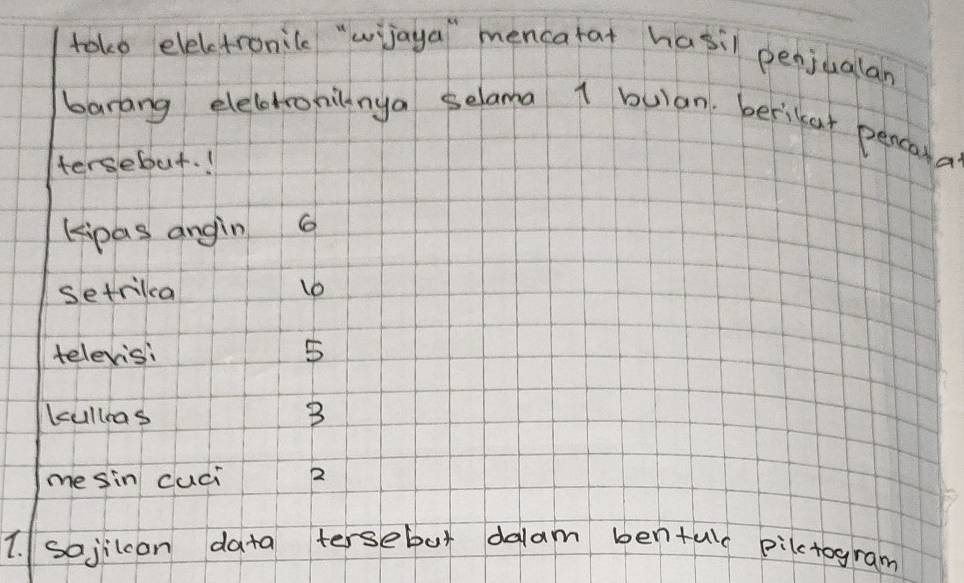 toko elektronik "wijaya" mencatat hasil penjualan
barang elektroniknya selama 1 bulan. berikat pencatat
tersebut.!
Kipas angin 6
setrika 10
televisi 5
kulkas 3
mesin cuci 2
1. sajikan data tersebut dalam bentuk piktogram